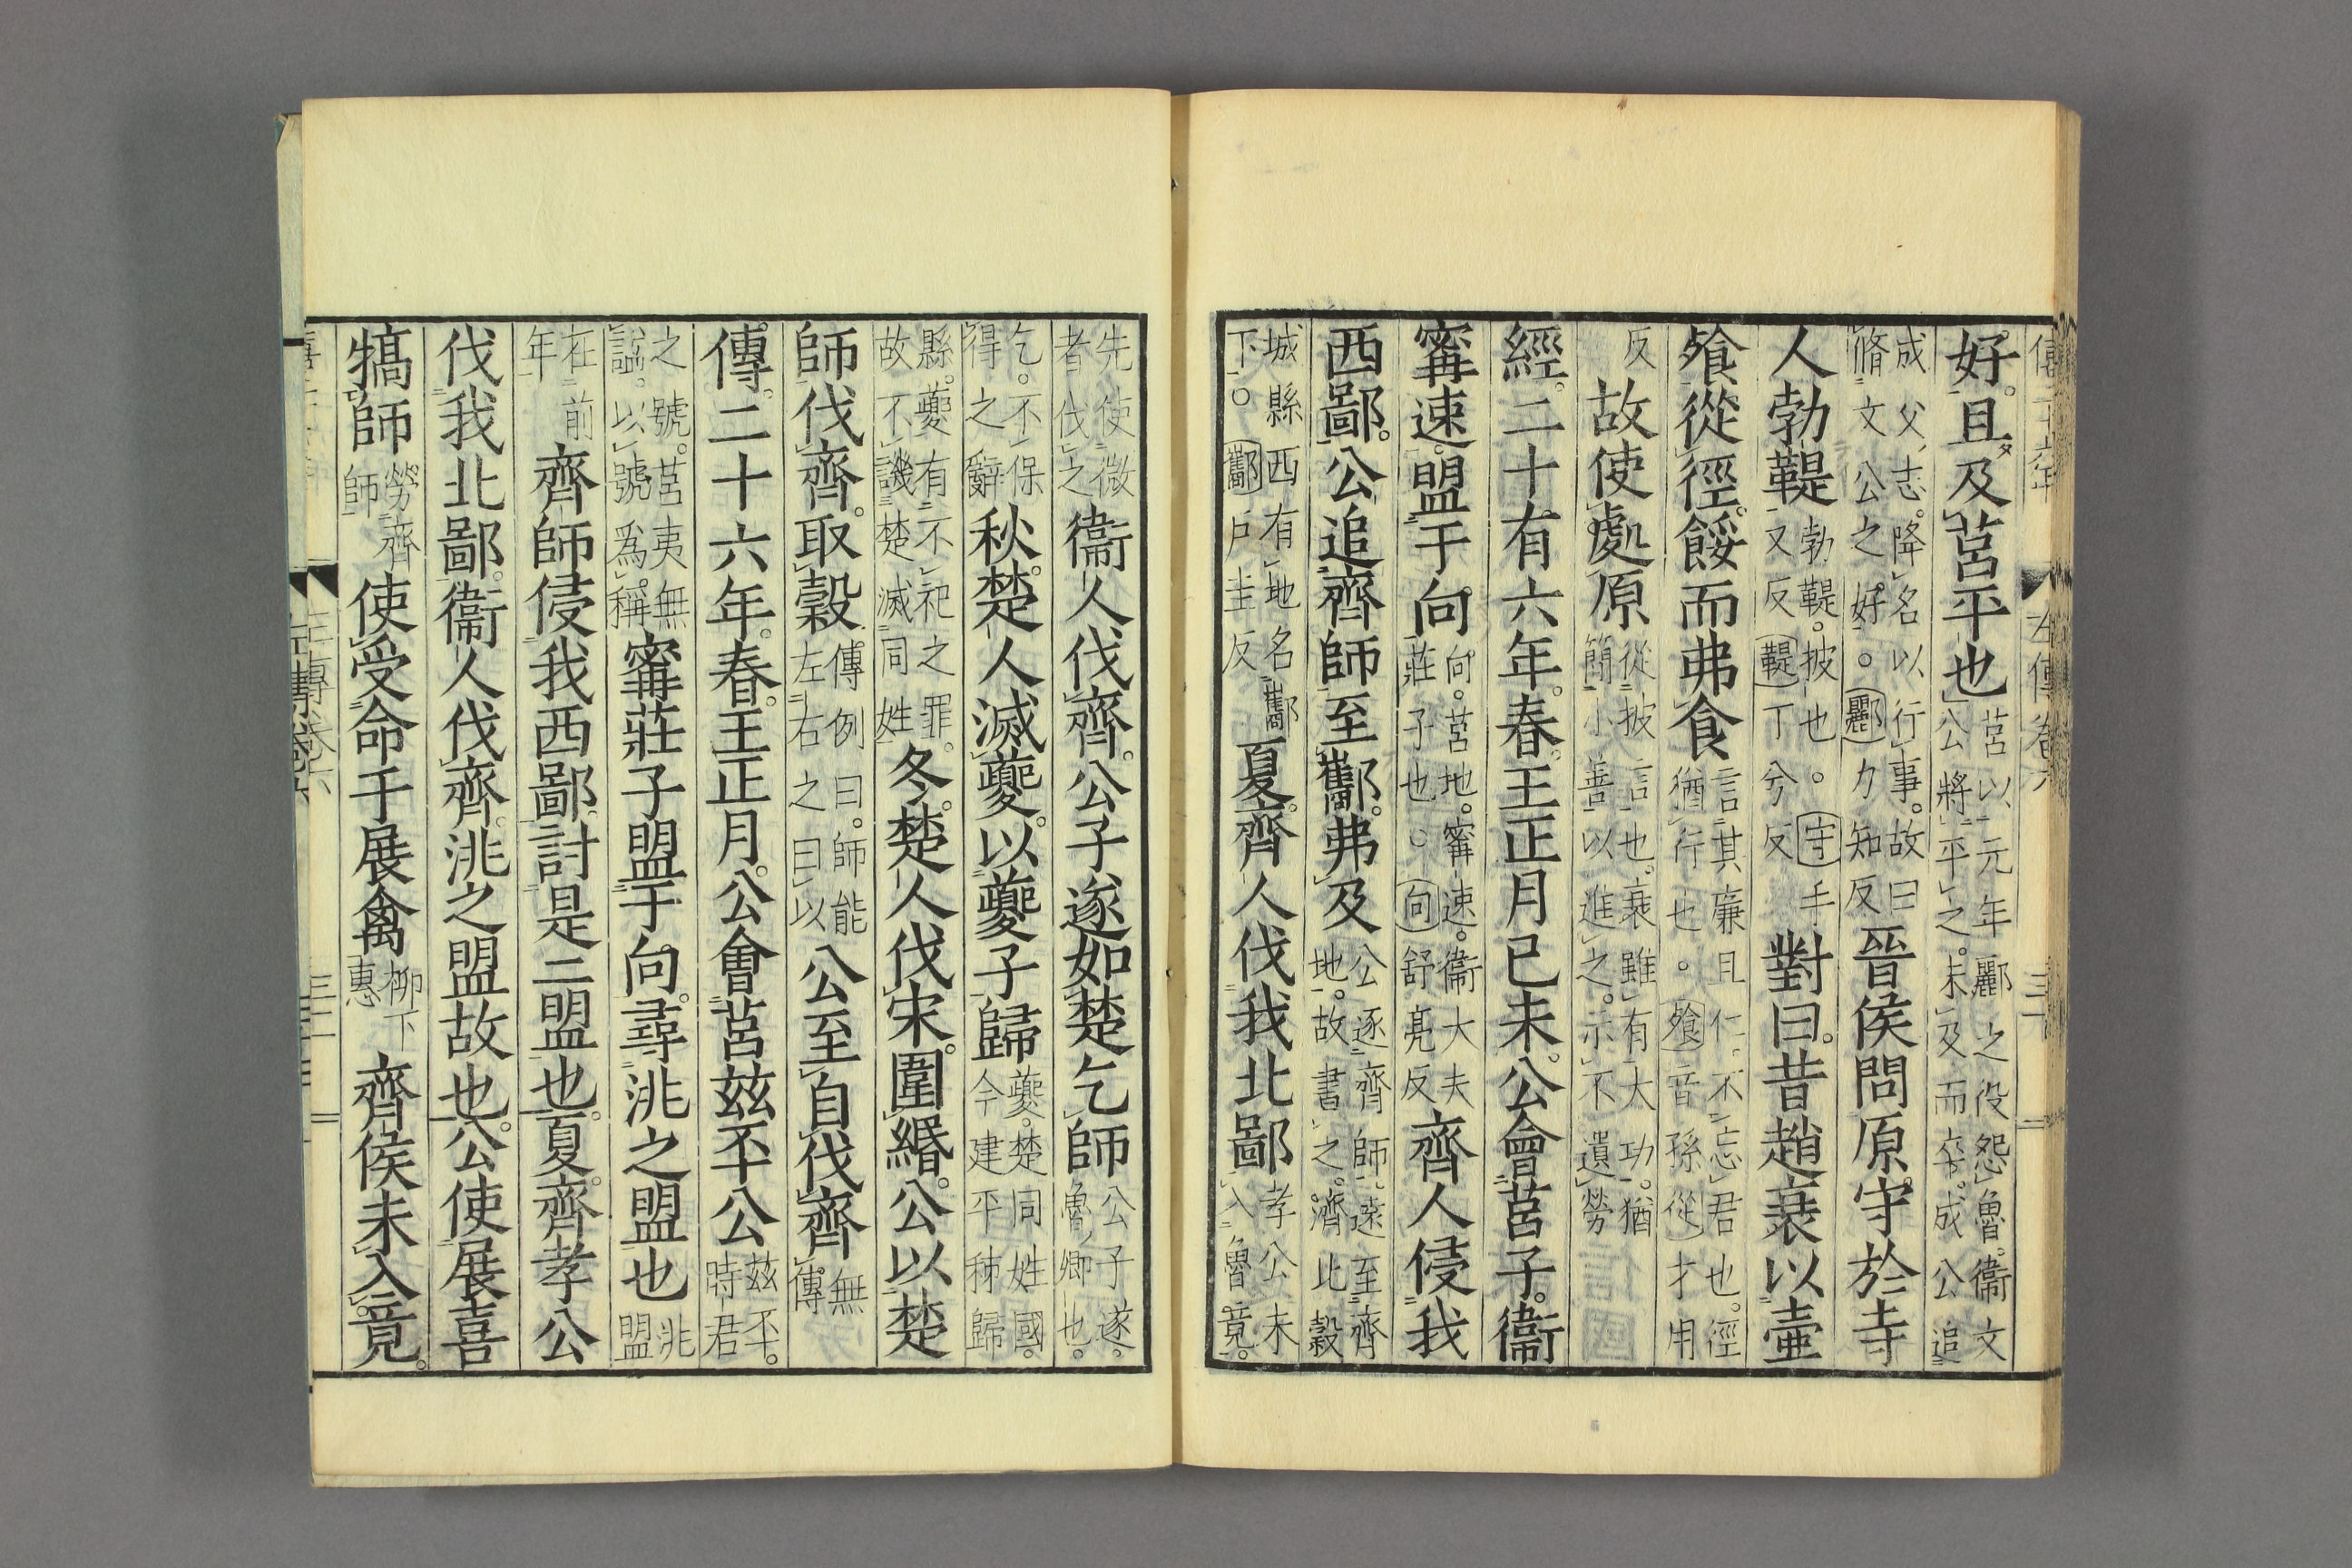 好。且及莒平也莒以元年酈之役怨魯。衞文公將平之。未及而卒。成公追
成父志。降名以行事。故曰脩文公之好。○酈力知反晉侯問原守於寺
人勃鞮勃鞮。披也。○守手又反鞮丁兮反對曰。昔趙衰以壷
飱從徑。餒而弗食言其廉且仁。不忘君也。徑猶行也。○飱音孫從才用
反故使處原從披言也。衰雖有大功。猶簡小善以進之。示不遺勞
經。二十有六年。春。王正月。已未。公會莒子。衞
甯速。盟于向。向。莒地。甯速。衞大夫莊子也。○向舒亮反齊人侵我
西鄙。公追齊師至酅。弗及公逐齊師。遠至齊地。故書之。濟北穀
城縣西有地名酅下。○酅戶圭反夏。齊人伐我北鄙孝公未入魯竟。
先使微者伐之衞人伐齊。公子遂如楚乞師公子遂。魯卿也。
乞。不保得之辭秋。楚人滅夔。以夔子歸夔。楚同姓國。今建平秭歸
縣。夔有不祀之罪。故不譏楚滅同姓冬。楚人伐宋。圍緡。公以楚
師伐齊。取穀傳例曰。師能左右之曰以公至自伐齊。無傳
傳。二十六年。春。王正月。公會莒玆丕公玆丕。時君
之號。莒夷無謚。以號爲稱甯莊子盟于向。尋洮之盟也洮盟
在前年齊師侵我西鄙。討是二盟也。夏。齊孝公
伐我北鄙。衞人伐齊。洮之盟故也。公使展喜
犒師勞齊師使受命于展禽柳下惠齊侯未入竟。